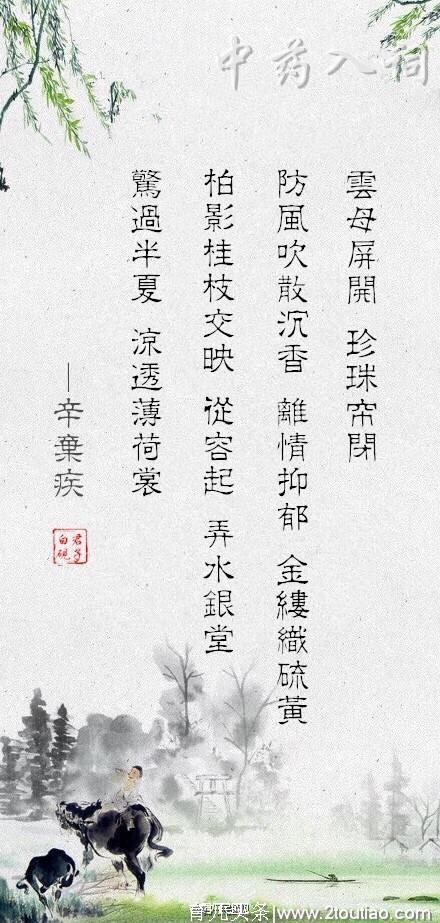 中药入词
雲母屏開 珍珠帘閉
防風吹散沉香 離情抑郁 金縷織硫黃
柏影桂枝交映 從容起 弄水銀堂
驚過半夏 涼透薄荷裳
—辛棄疾
君子
白硯
www.21outiao.com